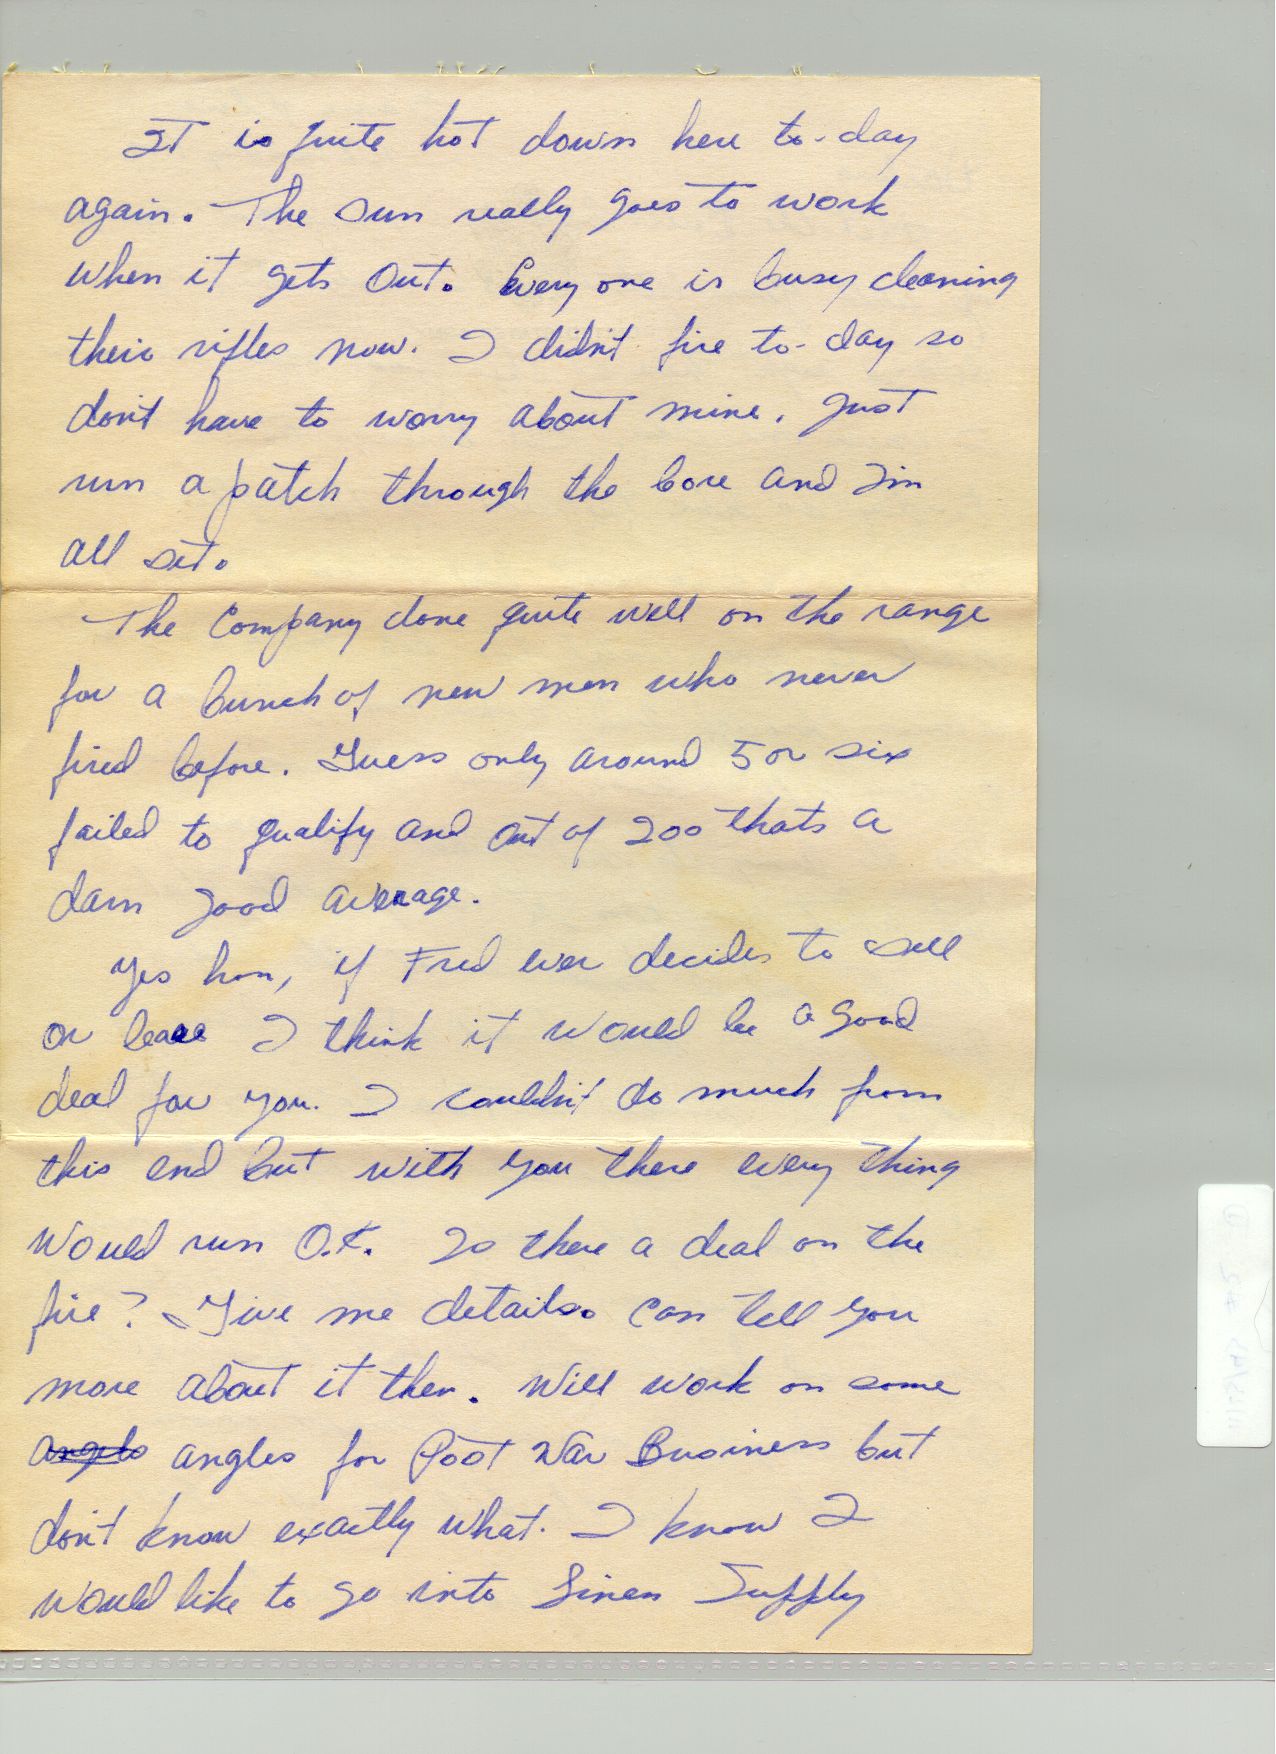 It is quite hot down here to-day
again. The sun really goes to work
when it gets out. Every one is busy cleaning
their rifles now. I didn't fire to-day so
don't have to worry about mine. Just
run a patch through the bore and I'm
all set.
The Company done quite well on the range
for a bunch of new men who never
fired before. Guess only around 5 or six
failed to qualify and out of 200 thats a
darn good average.
Yes hon, if Fred ever decides to sell
or lease I think it would be a good
deal for you. I couldn't do much from
this end but with you there every thing
would run O.K. Is there a deal on the
fire? Give me details. Can tell you
more about it then. Will work on some
angels angles for Post War Business but
don't know exactly what. I know I
would like to go into Linen Supply